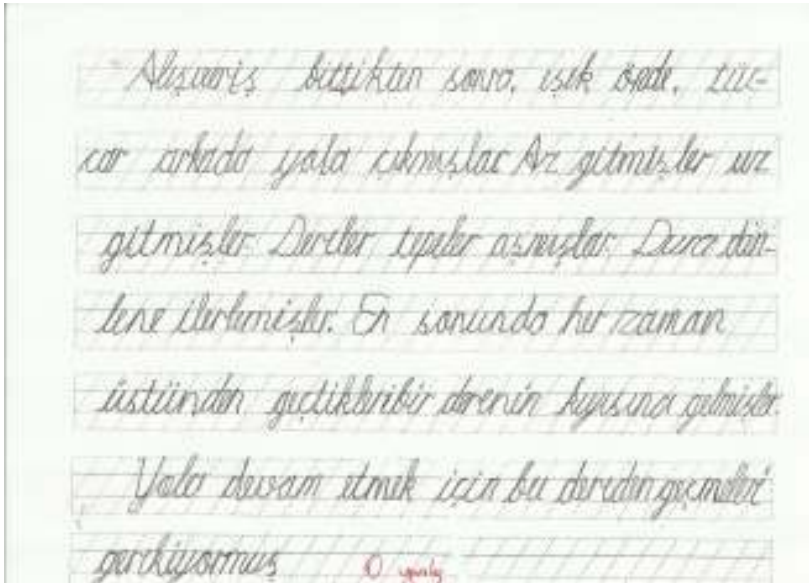 Alışveriş bittikten sonra, eşek önde, tüc-
car arkada yola çıkmışlar Az gitmişler uz
gitmişler. Dereler tepeler aşmışlar. Dura din-
lene ilerlemişler. En sonunda her zaman
üstünden geçtikleribir derenin kıyısına gelmişler.
Yola devam etmek için bu dereden geçmeleri
gerekiyormuş 0 yanlış